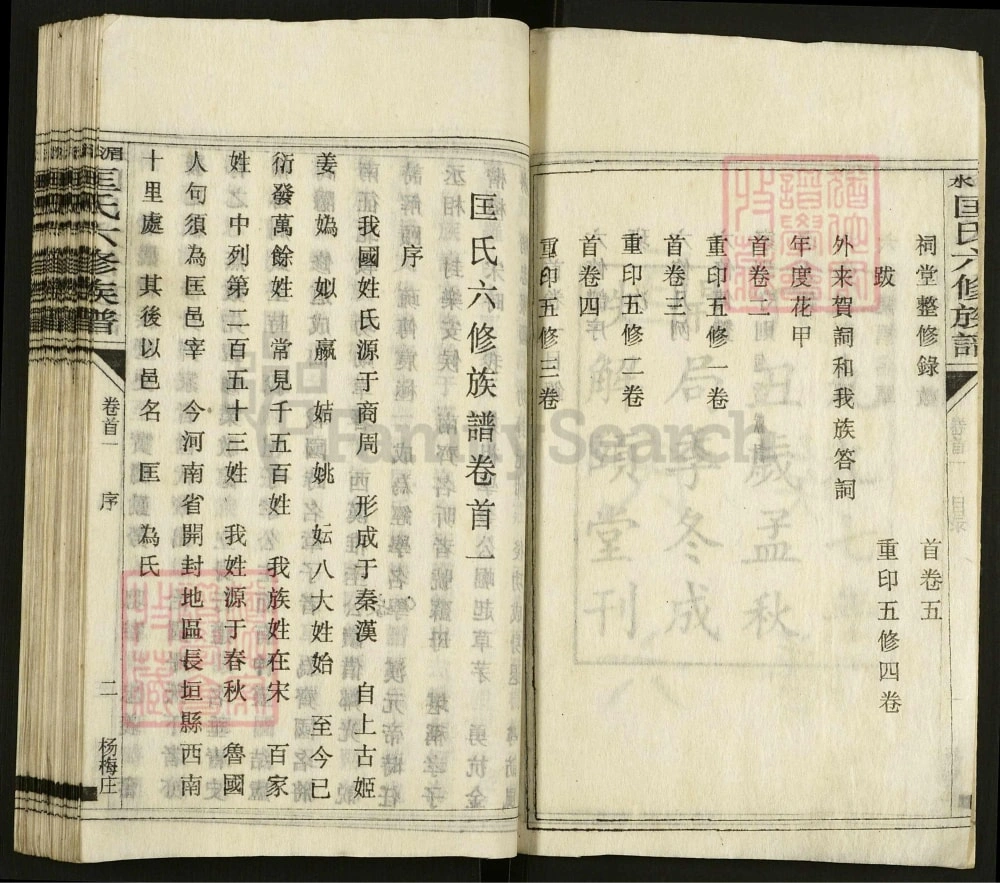 水 匡氏六修族譜
祠堂整修錄
跋
外来賀詞和我族答詞
年度花甲
首卷二
重印五修一卷
首卷三
重印五修二卷
首卷四
重印五修三卷
首卷五
重印五修四卷
卷首一 目录
匡氏六修族譜卷首一
序
我國姓氏源于商周 形成于秦漢 自上古姬
姜 媯 姒 嬴 姞 姚 妘八大姓始 至今已
衍發萬餘姓 常見千五百姓 我族姓在宋 百家
姓 中列第二百五十三姓 我姓源于春秋 魯國
人句須為匡邑宰 今河南省開封地區長垣縣西南
十里處 其後以邑名 匡 為氏
湄 匡氏六修族譜
卷首一 序
二
杨梅庄
FamilySearch